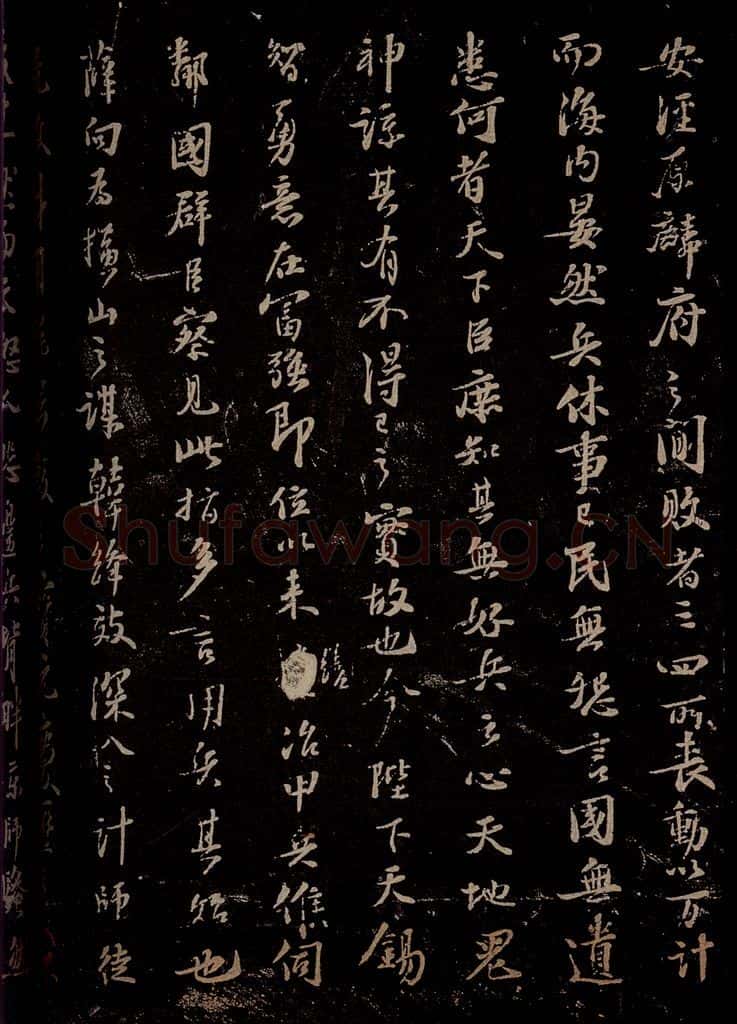 安涇原麟府之間敗者三四所喪動以萬計
而海內晏然兵休事已民無怨言國無遺
患何者天下臣庶知其無好兵之心天地鬼
神諒其有不得已之實故也今陛下天錫
智勇意在富強即位以來繕治甲兵候伺
鄰國群臣察見此指多言用兵其始也
薛向為橫山之謀韓絳效深入之計師徒
然而天怒人怨邊兵背畔京師騷
Shufawang.CN